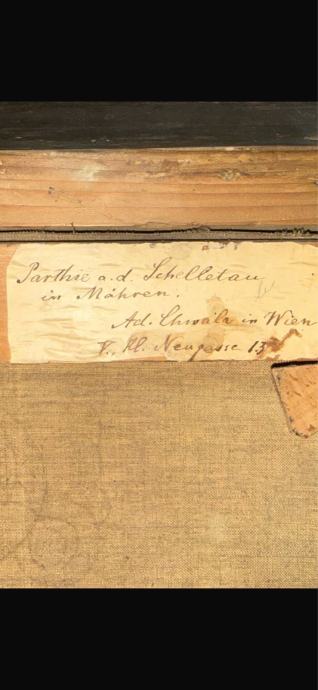 Parthie a. d. Schelletau
in Mähren.
Ad. Chwala in Wien
V., kl. Neugasse 13